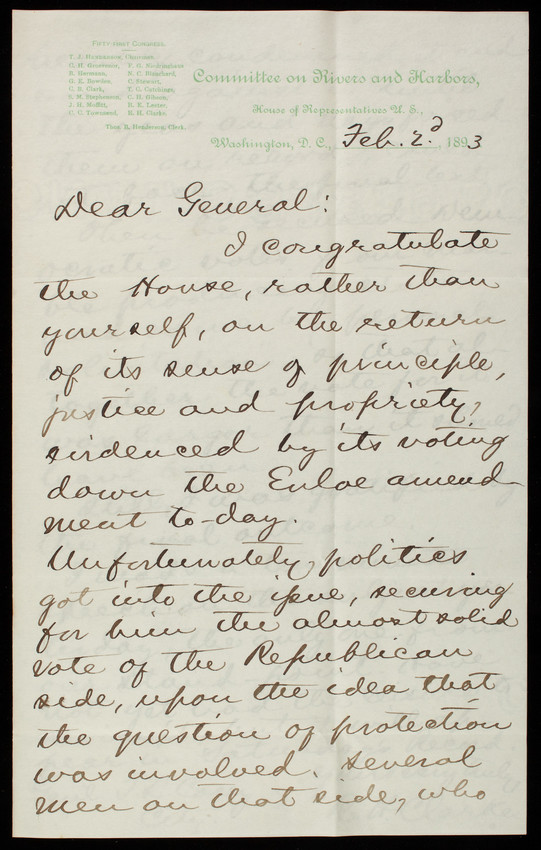 FIFTY-FIRST CONGRESS.
T. J. HENDERSON, Chairman.
C. H. Grosvenor,
B. Hermann,
G. E. Bowden,
C. B. Clark,
S. M. Stephenson,
J. H. Moffitt,
C. C. Townsend,
N. C. Blanchard,
C. Stewart,
T. C. Catchings,
C. H. Gibson,
R. E. Lester,
R. H. Clarke.
Thos. B. Henderson, Clerk.
Committee on Rivers and Harbors,
House of Representatives U. S.,
Washington, D. C., Feb. 2d, 1893
Dear General:
I congratulate
the House, rather than
yourself, on the return
of its sense of principle,
justice and propriety,
evidenced by its voting
down the Enloe amend-
ment to-day.
Unfortunately politics
got into the issue, securing
for him the almost solid
vote of the Republican
side, upon the idea that
the question of protection
was involved. Several
men on that side, who